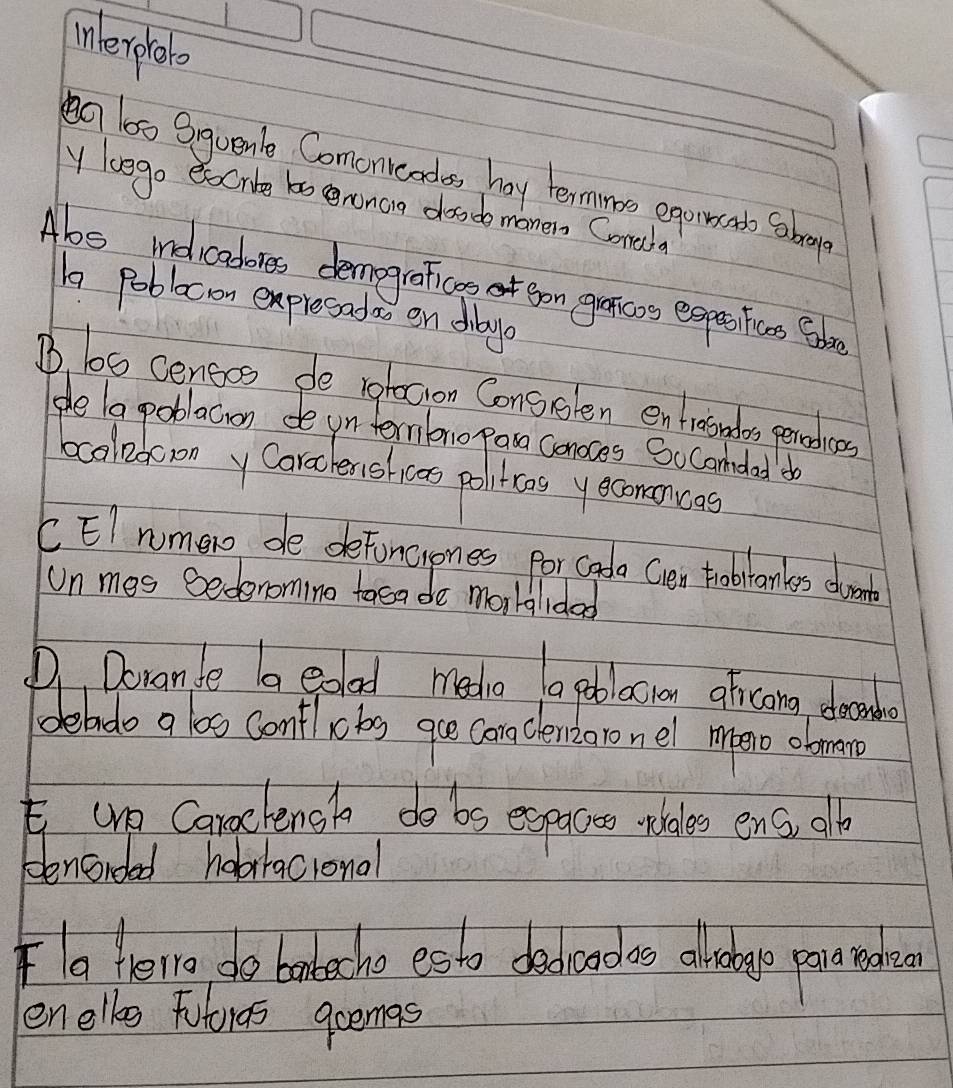 interpreto
en los Siguente Comonicados hay terminos equivocado Sabraya
y luego escribe los enuncia dos de manera Correcta
A los indicadores demograficos son graficos espesificos Sobre
la Poblacion expresadas en dibujo
B. los censos de rotacion Consisten en trasados periodicos
de la poblacion de un territorio para Conoces Su Cantidad de
localizacion y Caracteristicas politicas y economicas
C El numero de defunciones Por Cada Cien habitantes durante
Un mes Sedenomina tasa de mortalidad
D. Durante la edad media la poblacion africana decendio
debido a los conflictos que Caracterizaron el impero otomano
E una Caracteristi de los espacios rurales en Su alta
densidad habitacional
F la tierra de barbecho esto dedicadas al trabajo para realizar
en ellas Futuras quemas